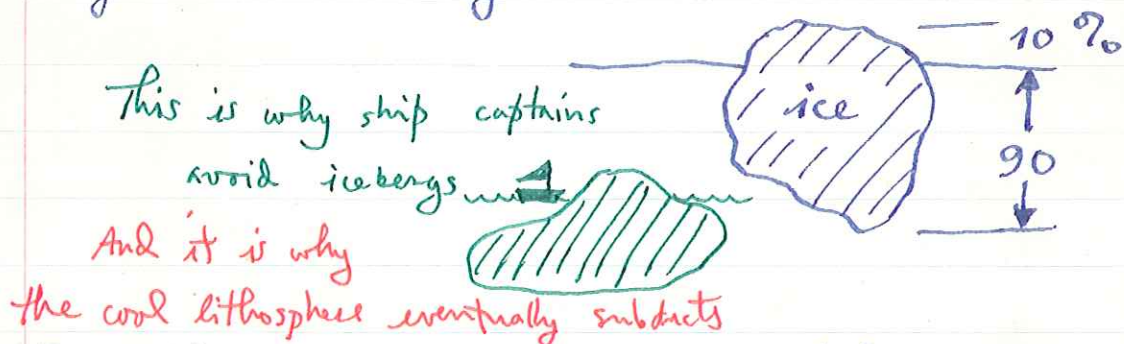 10 %
ice
This is why ship captains
avoid icebergs
90
And it is why
the cool lithosphere eventually subducts